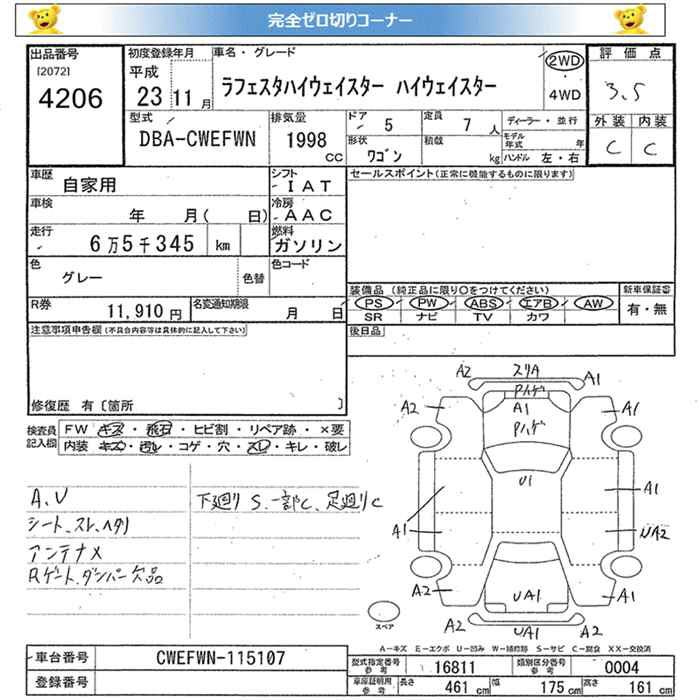 完全ゼロ切りコーナー
出品番号 初度登録年月 車名・グレード 評価点
[2072]
4206
平成
23 11 月
ラフェスタハイウェイスター ハイウェイスター
2WD
4WD
3.5
型式 排気量 ドア 5 定員 7 人 ディーラー・並行 外装 内装
DBA-CWEFWN 1998 CC
形状 ワゴン 積載 kg
モデル年式 年
ハンドル 左・右
C C
車歴 自家用 シフト IAT セールスポイント(正常に機能するものに限ります)
車検 年 月( 日) 冷房 AAC
走行 6万5千345 km 燃料 ガソリン
色 グレー 色替 色コード
装備品 (純正品に限り〇をつけてください) 新車保証書
PS PW ABS エアB AW
SR ナビ TV カワ
有・無
R券 11,910 円 名変通知期限 月 日
後日品
注意事項申告欄(不具合内容等は具体的に記入して下さい)
修復歴 有〔箇所 〕
検査員記入欄
FW キズ・飛石・ヒビ割・リペア跡・×要
内装 キズ・汚れ・コゲ・穴・スレ・キレ・破レ
A.V
シート、スレ、ヘタリ
アンテナ×
Rゲート、ダンパー欠品
下廻り S、一部C、足廻りC
A2 スリA A1
Pハゲ
A2 A1 A1
Pハゲ
U1
A1 A1
UA2
A2 UA1 A2
A2 UA1 A2
スペア
A-キズ E-エクボ U-凹み W-補修跡 S-サビ C-腐食 XX-交換済
車台番号 CWEFWN-115107
型式指定番号 参考 16811 類別区分番号 参考 0004
登録番号
車庫証明用 参考 長さ 461 cm 幅 175 cm 高さ 161 cm